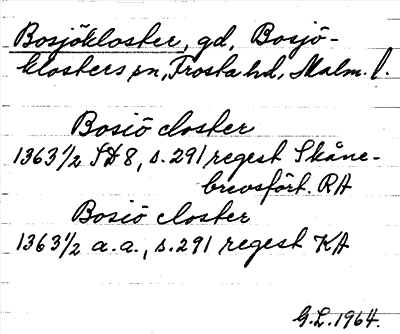 Bosjökloster, gd, Bosjö-
klosters sn, Frosta hd, Malm. l.
Bosiö closter
1363 1/2 SD 8, s. 291 regest Skåne-
brevsfört. RA
Bosiö closter
1363 1/2 a.a., s. 291 regest KA
G.L. 1964.